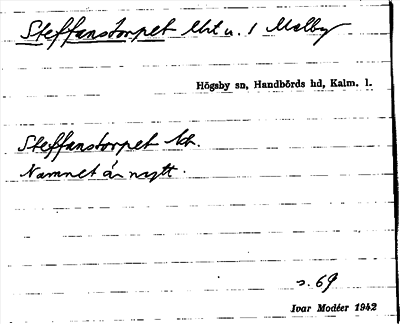 Steffanstorpet u. 1 Malby
Högsby sn, Handbörds hd, Kalm. l.
Steffanstorpet
Namnet är nytt.
s. 69
Ivar Modéer 1942